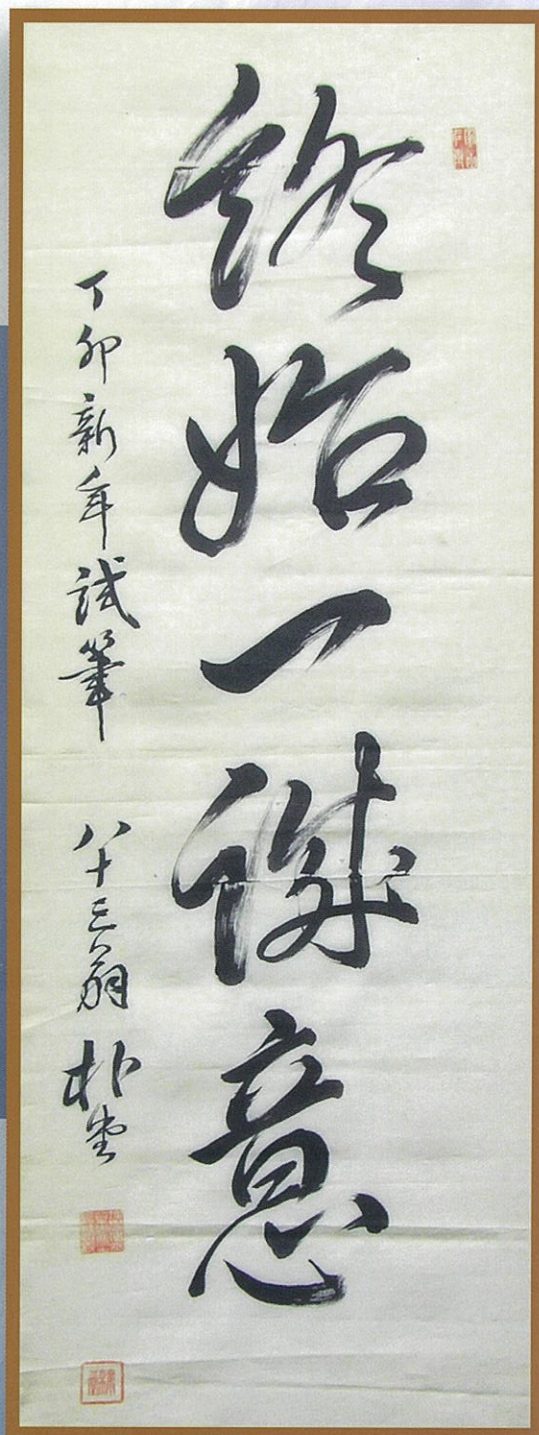 終始一誠意
丁卯新年試筆 八十三翁 朴堂